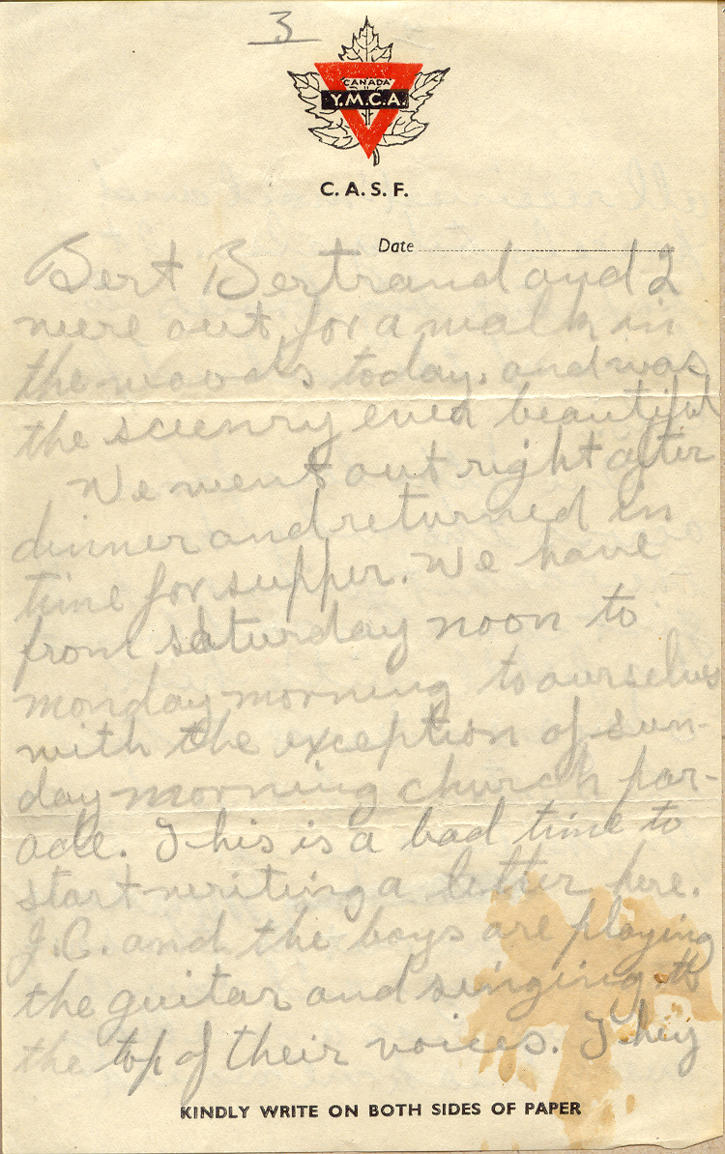 3
CANADA
Y.M.C.A.
C. A. S. F.
Date
Bert Bertrand and I
were out for a walk in
the woods today, and was
the scienry ever beautiful
We went out right after
dinner and returned in
time for supper. We have
from saturday noon to
monday morning to ourselves
with the exception of sun-
day morning church par-
ade. This is a bad time to
start writing a letter here.
J.C. and the boys are playing
the guitar and singing to
the top of their voices. They
KINDLY WRITE ON BOTH SIDES OF PAPER